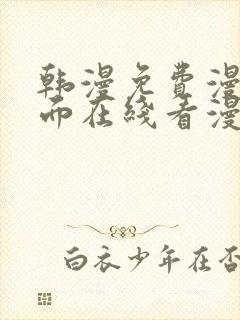 韩漫免費漫
而在綫看漫
白衣少年在否